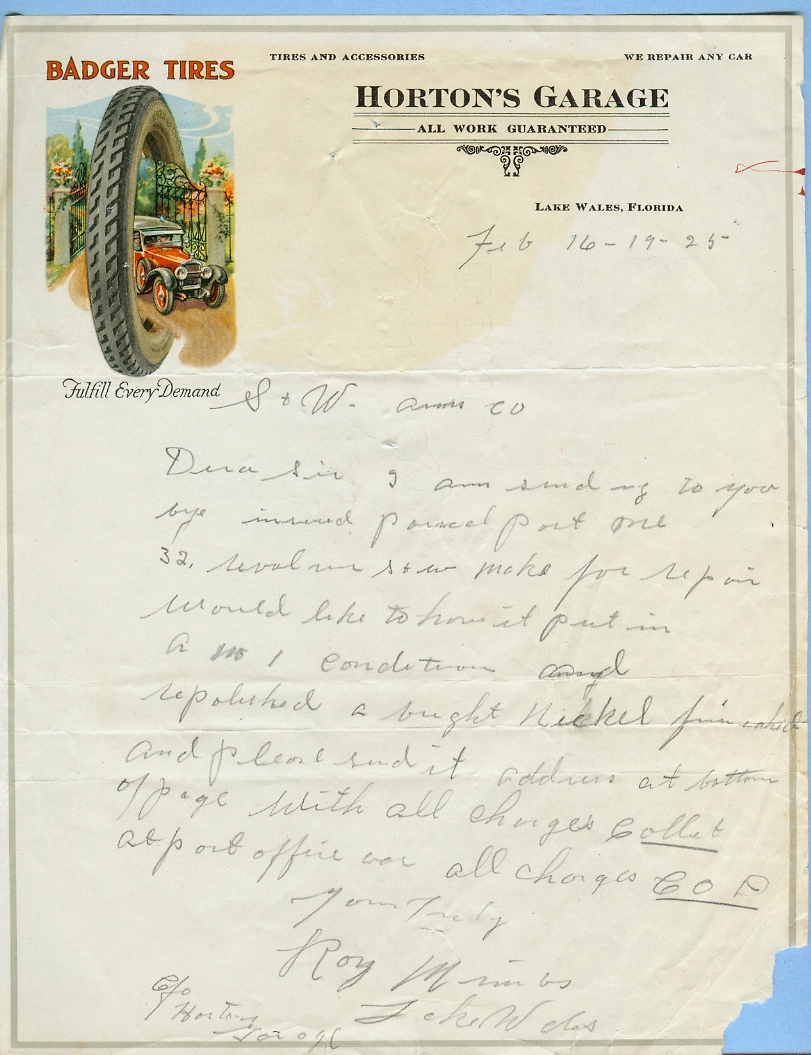 BADGER TIRES
TIRES AND ACCESSORIES
WE REPAIR ANY CAR
HORTON'S GARAGE
ALL WORK GUARANTEED
LAKE WALES, FLORIDA
Feb 16-19-25
Fulfill Every Demand
S & W. arms co
Dear Sir I am sending to you
bye insured parcel Post one
32. revolver s&w make for repair
Would like to have it put in
A no 1 condition and
repolished a bright Nickel finished
and please send it address at bottom
of page With all charges Collet
at post office all charges C O D
Yours Truly
Roy Mimbs
c/o
Hortons Lake Wales
Garage